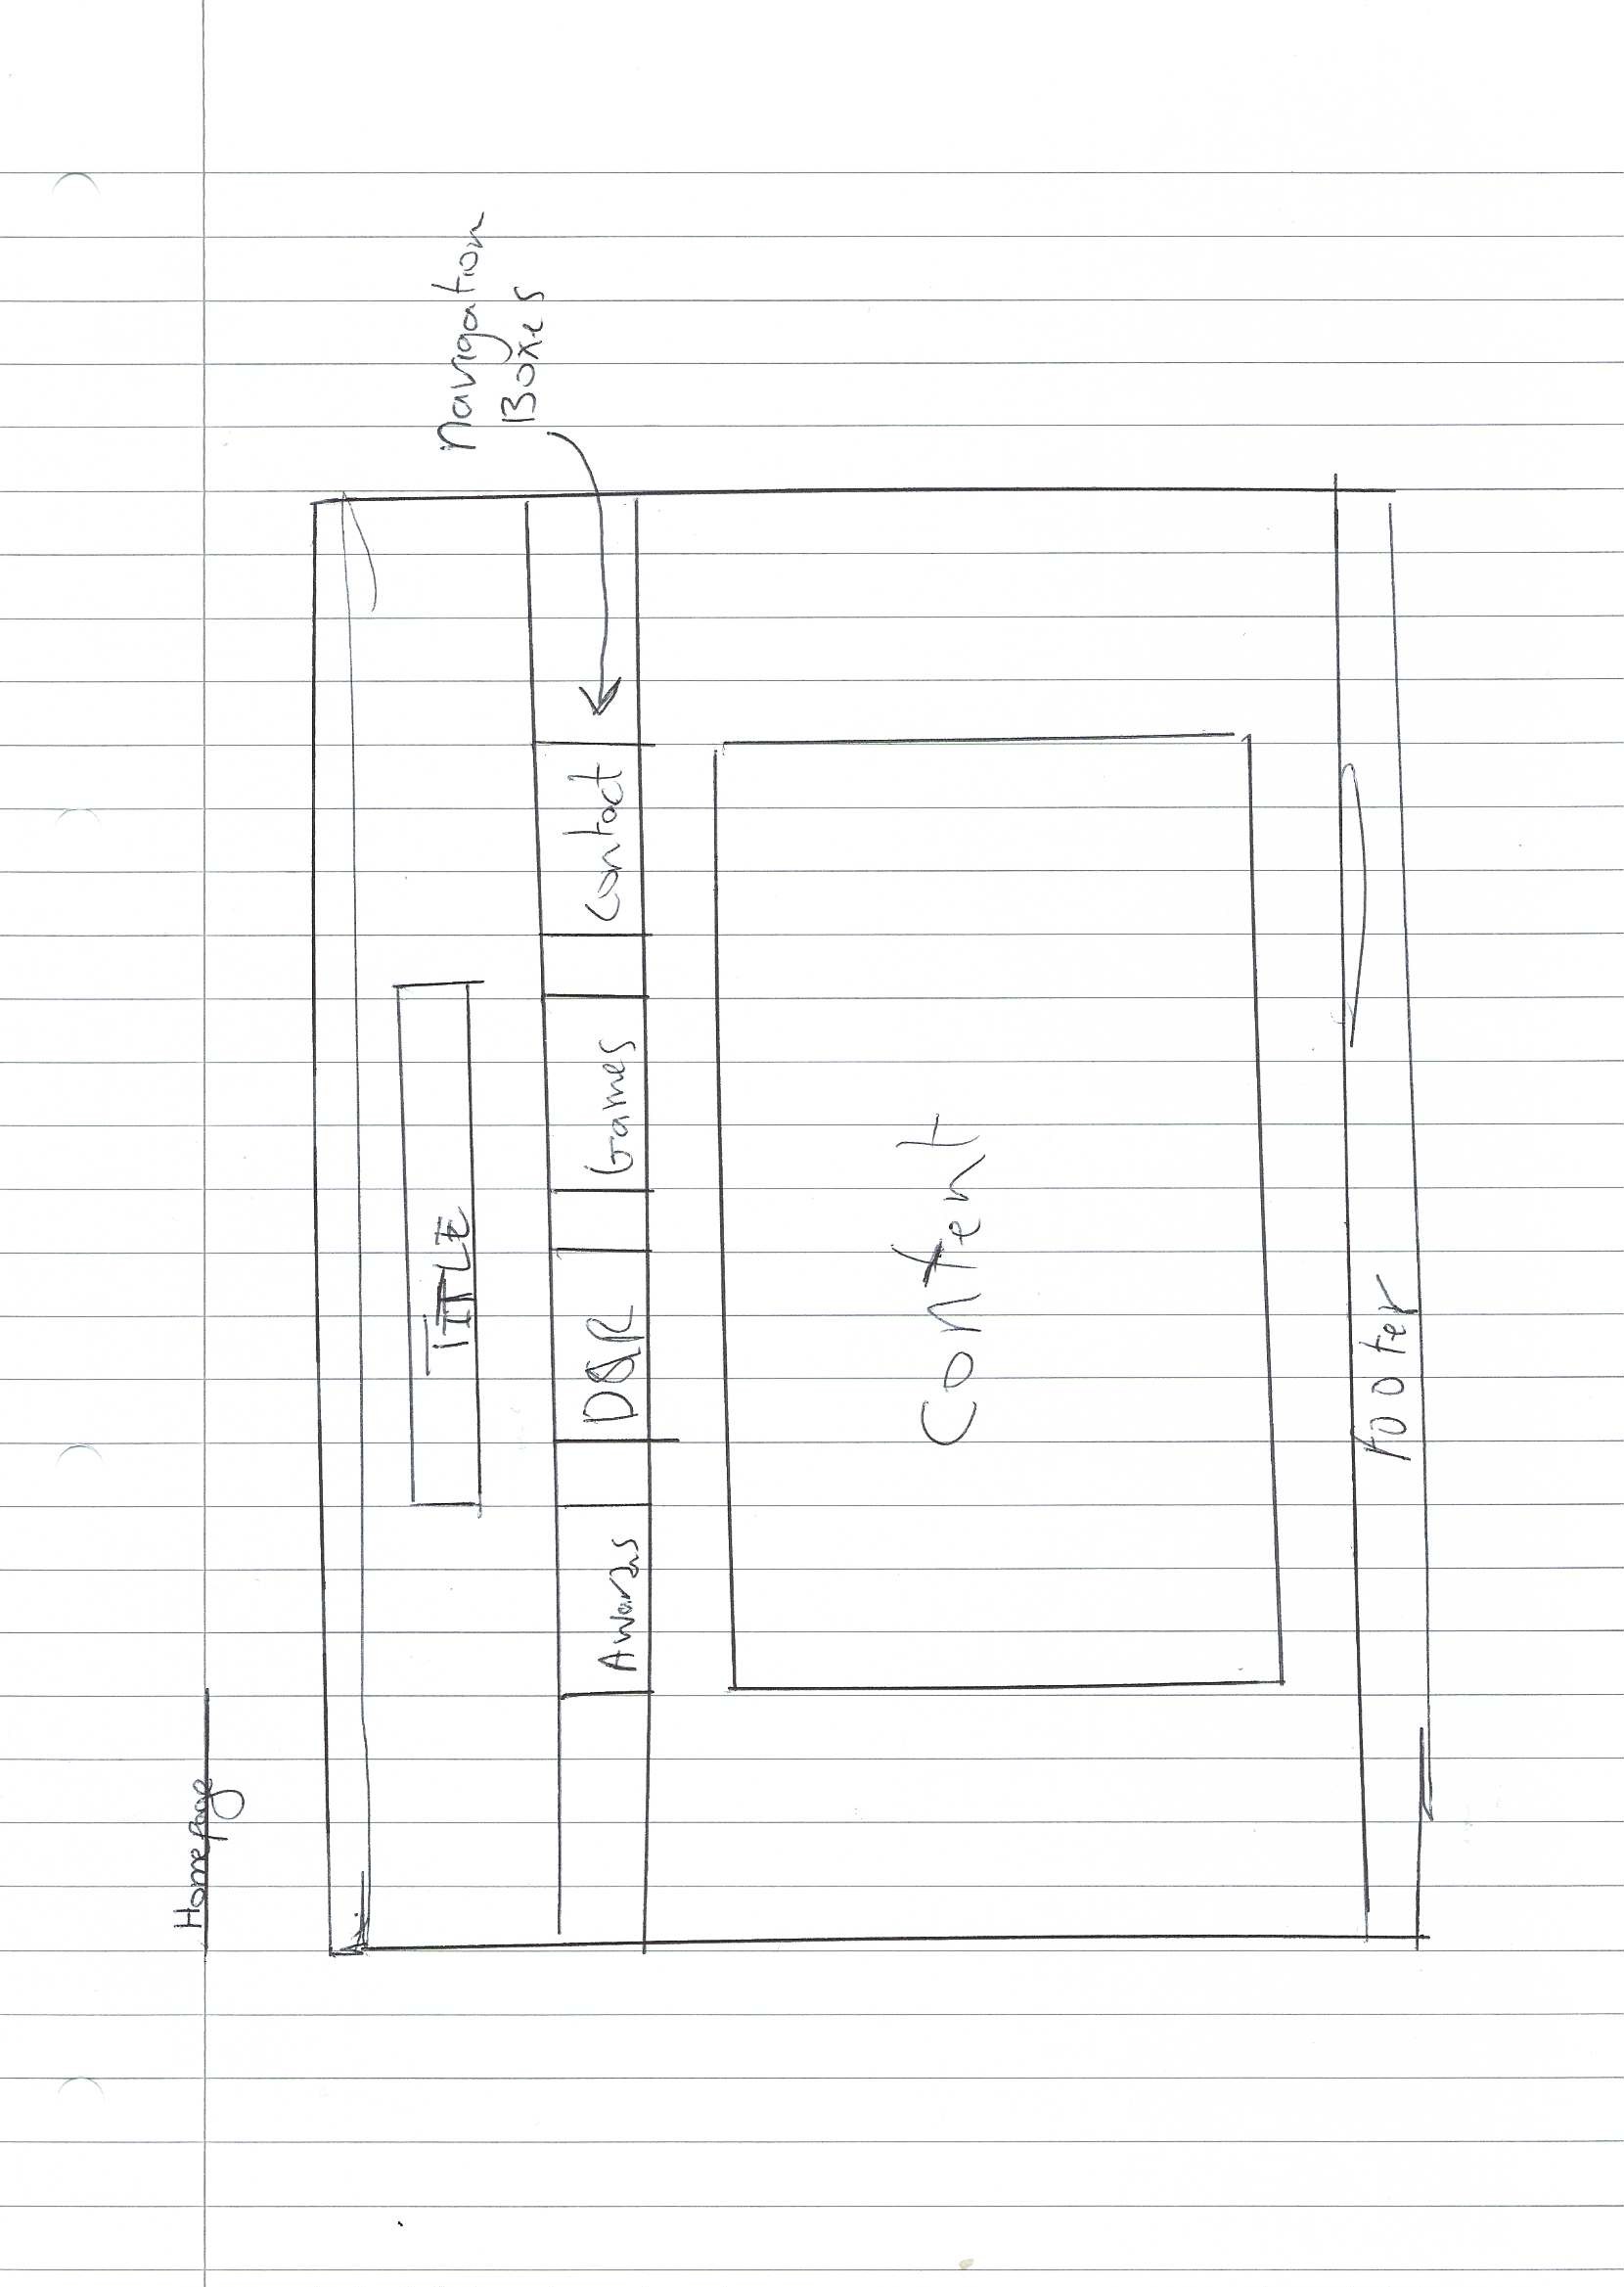 Homepage
Navigation
Boxes
TITLE
Awards
D&R
Games
Contact
Content
Footer